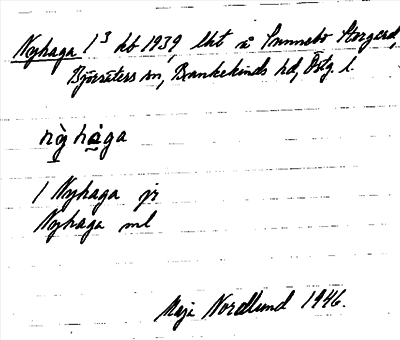 Nyhaga 1³ kb 1939, lht å Sunnebo Storgård,
Björsäters sn, Bankekinds hd, Östg. l.
nỳhaga
1 Nyhaga jr
Nyhaga ml
Maja Nordlund 1946.